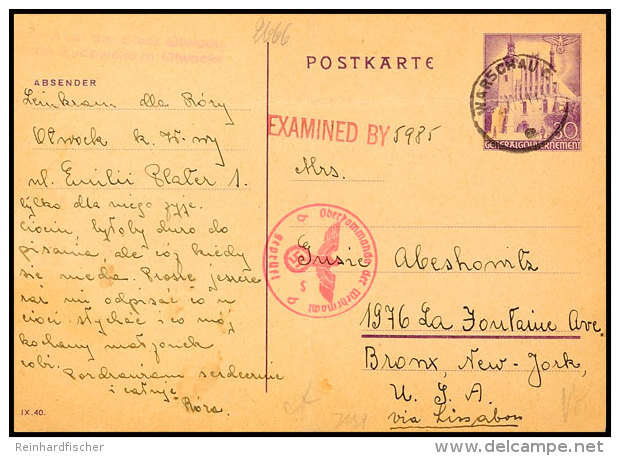 2666
POSTKARTE
ABSENDER
Leinkram dla Róży
Otwock k. W-wy
ul. Emilii Plater 1.
tylko dla niego żyję.
Ciociu, byłoby dużo do
pisania, ale cóż kiedy
się nie da. Proszę jeszcze
raz mi odpisać co u
cioci słychać i co mój
kochany małżonek
robi.
Pozdrawiam serdecznie
i całuję
Róża.
IX.40.
EXAMINED BY 5985
WARSCHAU C
30
GENERALGOUVERNEMENT
Mrs.
Oberkommando der Wehrmacht
geprüft
Gusie Abeshowitz
1976 La Fontaine Ave.
Bronx, New-York,
U. S. A.
via Lissabon
Reinhardfischer
www.delcampe.net